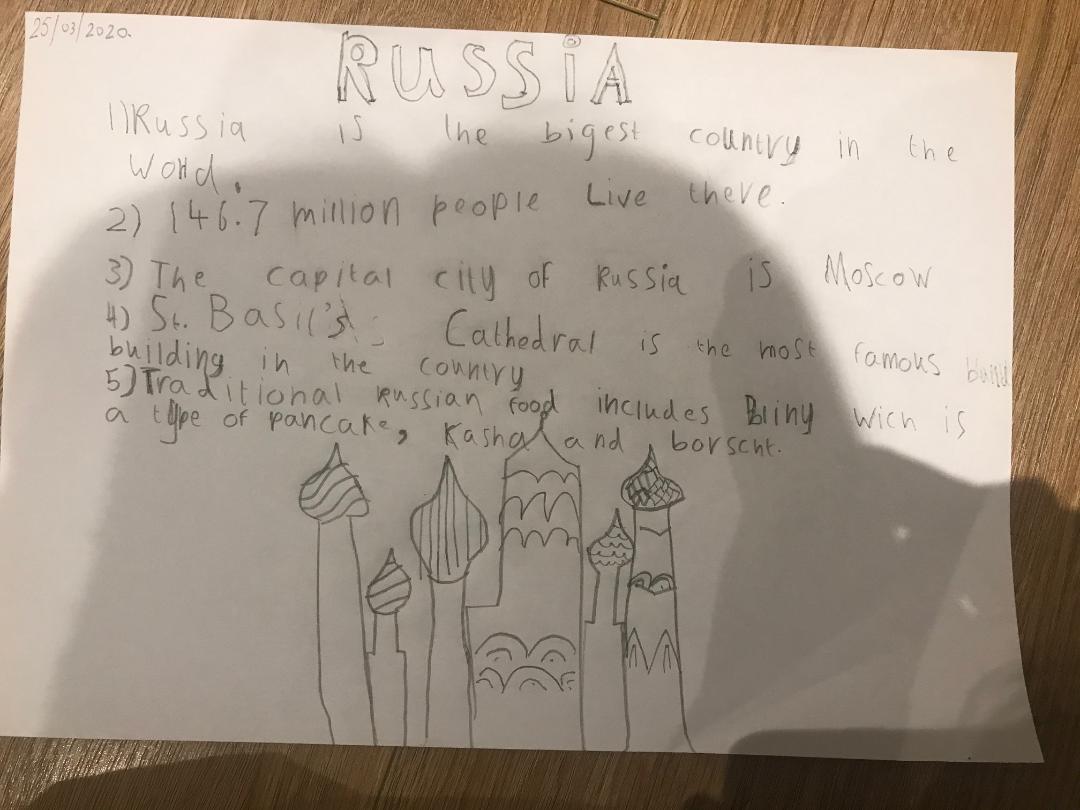 25/03/2020.
RUSSiA
1) Russia is the bigest country in the
World.
2) 146.7 million people Live there.
3) The capital city of Russia is Moscow
4) St. Basil's Cathedral is the most famous build
building in the country
5) Traditional Russian food includes Bliny wich is
a type of pancake, Kasha and borscht.